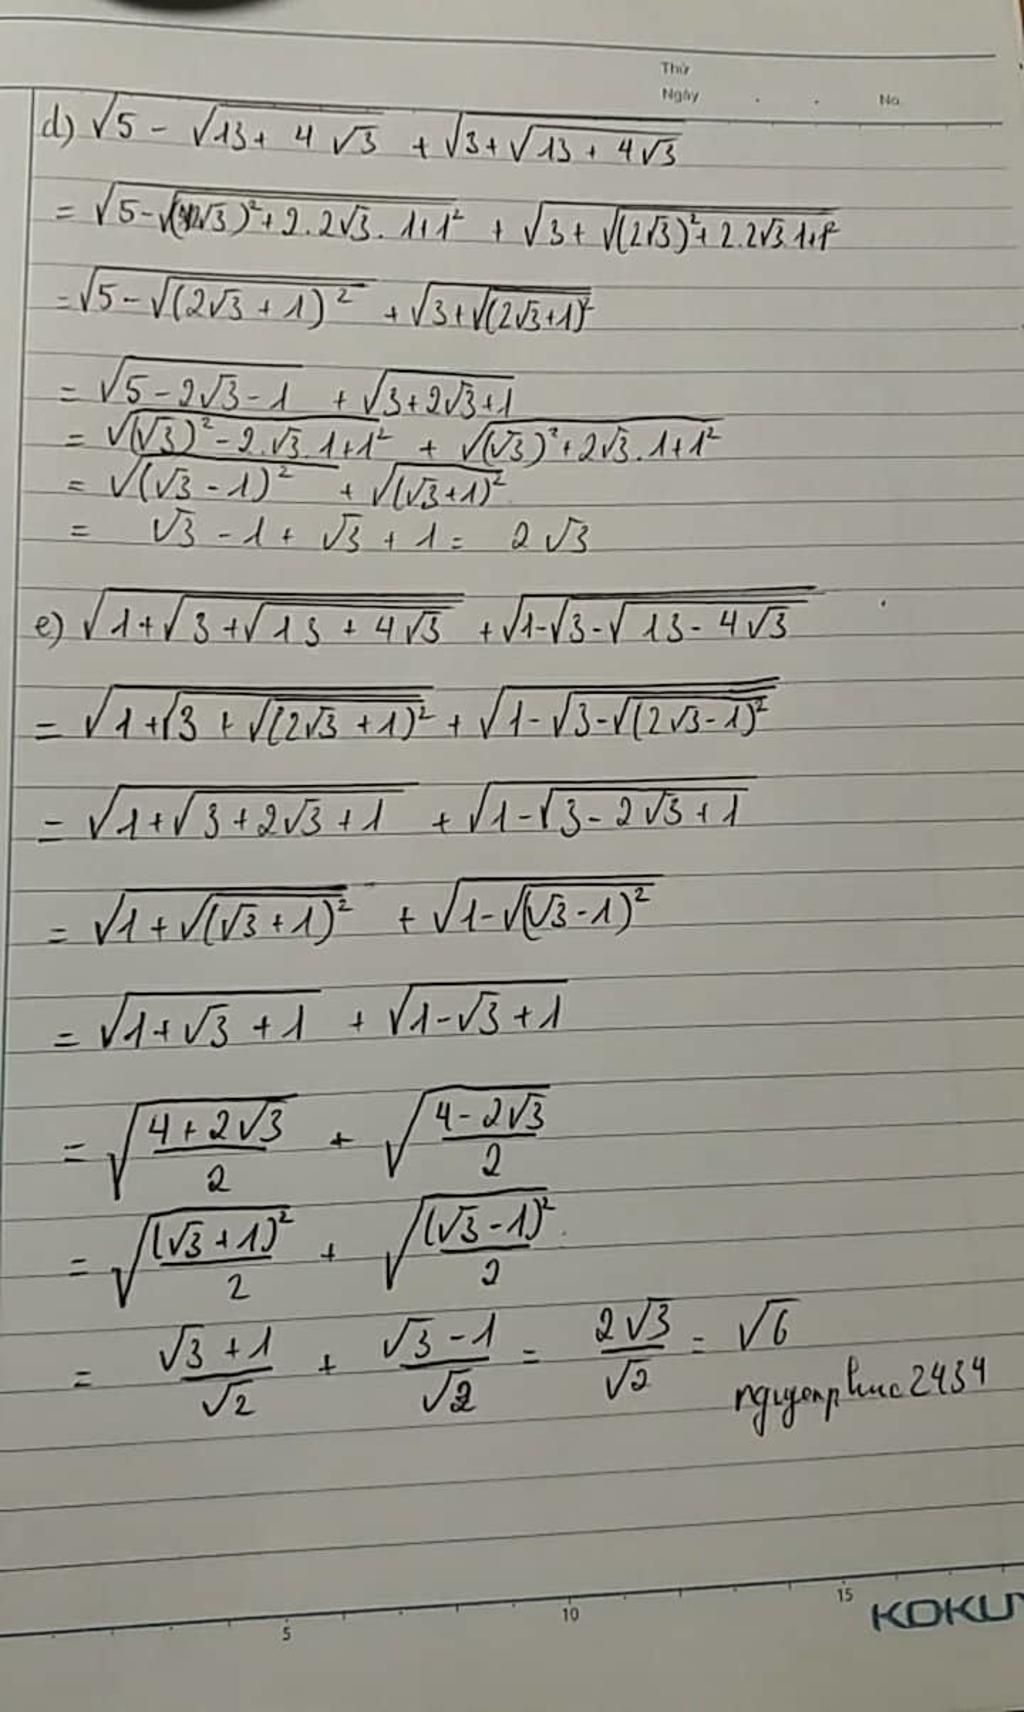 Thứ
Ngày . . No.
d) √(5 - √(13 + 4√3)) + √(3 + √(13 + 4√3))
= √(5 - √((2√3)² + 2.2√3.1 + 1²)) + √(3 + √((2√3)² + 2.2√3.1 + 1²))
= √(5 - √((2√3 + 1)²)) + √(3 + √((2√3 + 1)²))
= √(5 - 2√3 - 1) + √(3 + 2√3 + 1)
= √((√3)² - 2.√3.1 + 1²) + √((√3)² + 2√3.1 + 1²)
= √((√3 - 1)²) + √((√3 + 1)²)
= √3 - 1 + √3 + 1 = 2√3
e) √(1 + √(3 + √(13 + 4√3))) + √(1 - √(3 - √(13 - 4√3)))
= √(1 + √(3 + √((2√3 + 1)²))) + √(1 - √(3 - √((2√3 - 1)²)))
= √(1 + √(3 + 2√3 + 1)) + √(1 - √(3 - 2√3 + 1))
= √(1 + √((√3 + 1)²)) + √(1 - √((√3 - 1)²))
= √(1 + √3 + 1) + √(1 - √3 + 1)
= √((4 + 2√3)/2) + √((4 - 2√3)/2)
= √((√3 + 1)²/2) + √((√3 - 1)²/2)
= (√3 + 1)/√2 + (√3 - 1)/√2 = 2√3/√2 = √6
nguyenphuc2434
5 10 15 KOKUY